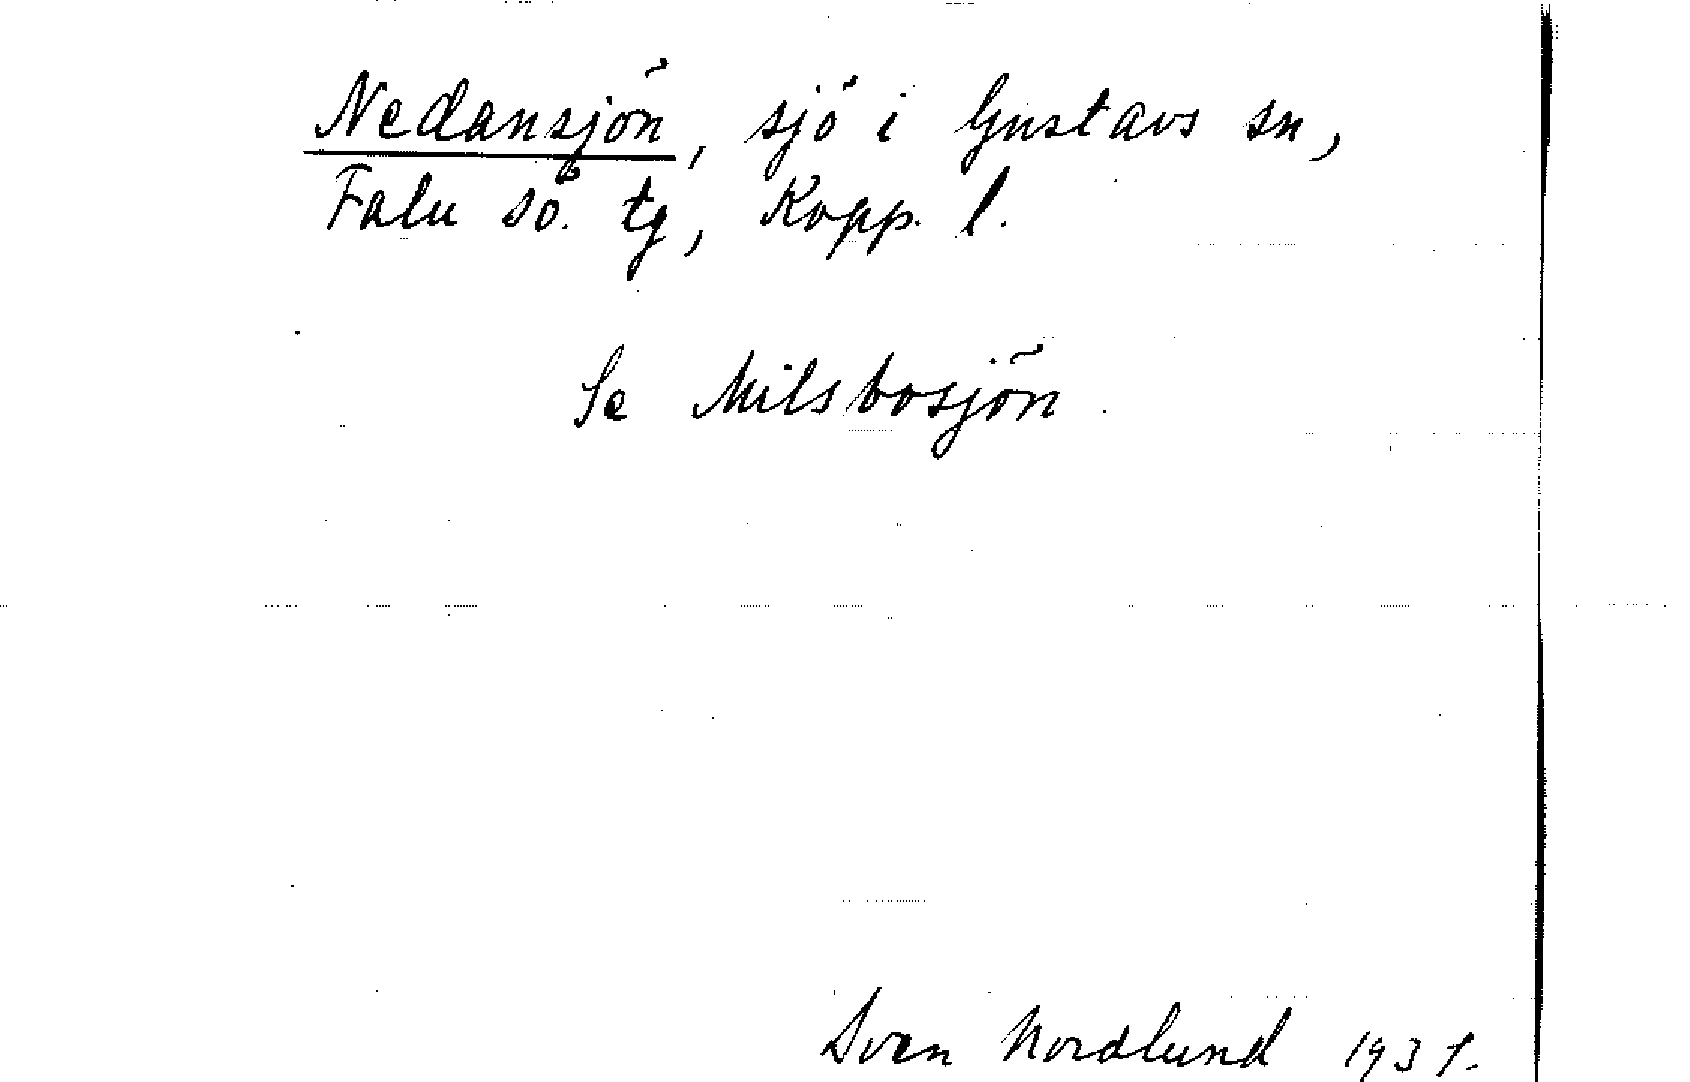 Nedansjön, sjö i Gustavs sn,
Falu sö. tg, Kopp. l.
Se Milsbosjön.
Sven Nordlund